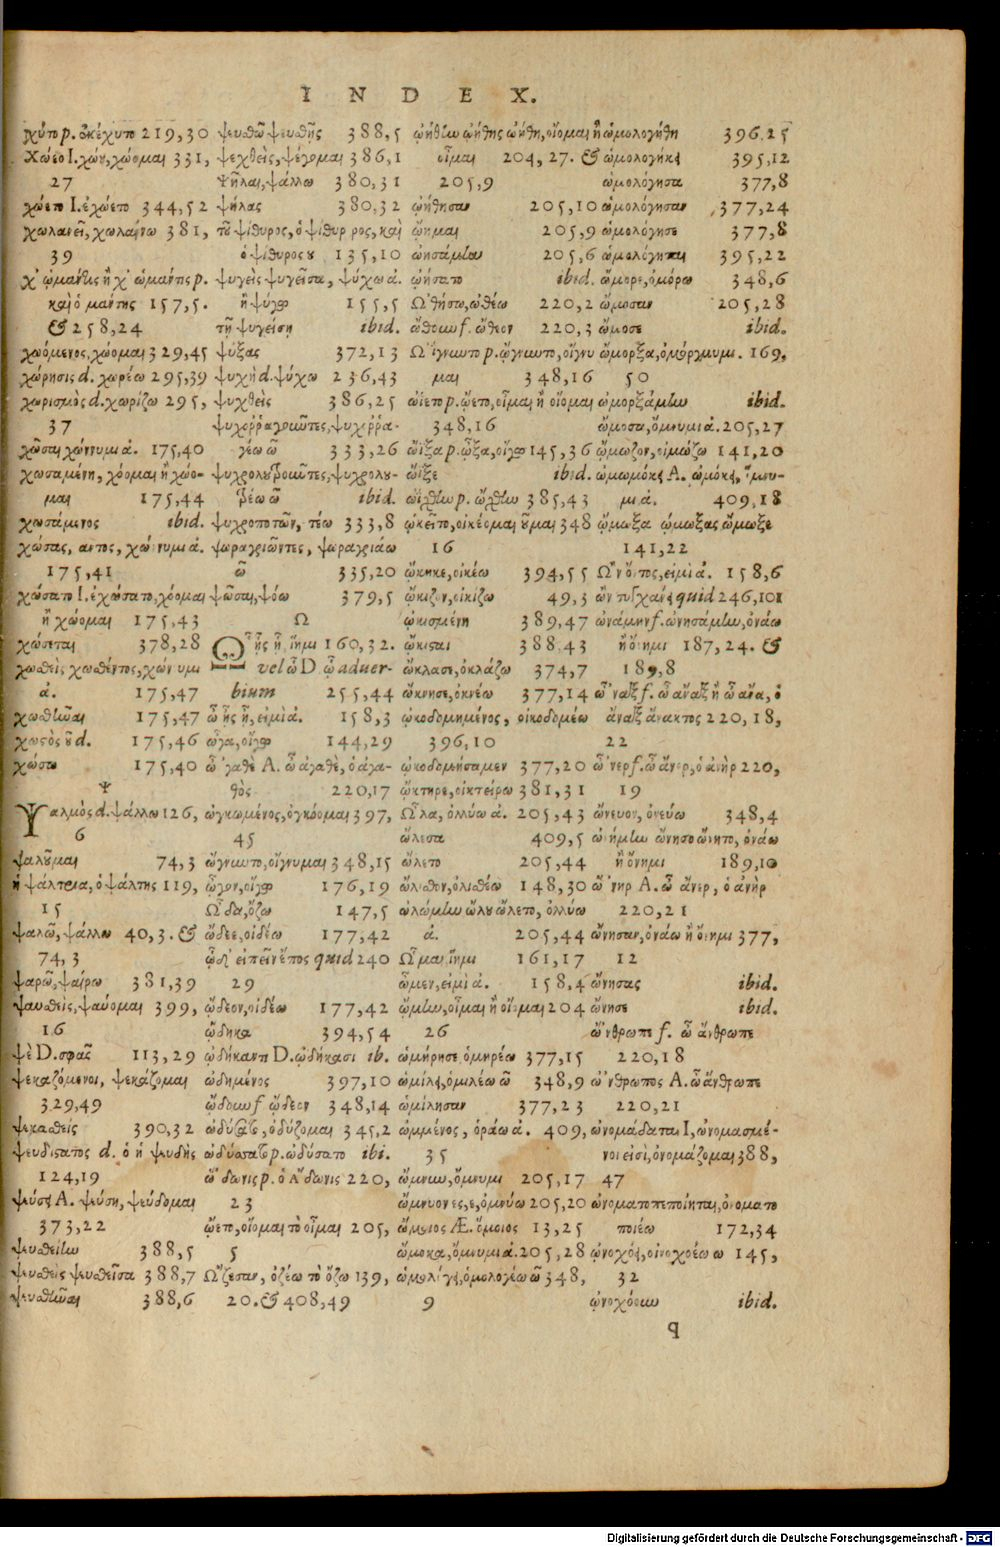 INDEX.
χύτο p. ἐκέχυτο 219,30
Χώεο I. χώȣ, χώομαι 331,
27
χώετο I. ἐχώετο 344,52
χωλανεῖ, χωλαίνω 381,
39
χ' ὡμάντις ἢ χ' ὡμάντης p.
καὶ ὁ μάντης 157,5.
& 258,24
χωόμενος, χώομαι 329,45
χώρησις d. χωρέω 295,39
χωρισμὸς d. χωρίζω 295,
37
χῶσαι, χώννυμι ά. 175,40
χωσαμένη, χόομαι ἢ χώο-
μαι 175,44
χωσάμενος ibid.
χώσας, αντος, χώννυμι ά.
175,41
χώσατο I. ἐχώσατο, χόομαι
ἢ χώομαι 175,43
χώσεται 378,28
χωσθεὶς χωσθέντος, χώννυμι
ά. 175,47
χωσθῆναι 175,47
χωστὸς ȣ d. 175,46
χώσω 175,40
Ψ
Ψαλμὸς d. ψάλλω 126,
6
ψαλοῦμαι 74,3
ἡ ψάλτρια, ὁ ψάλτης 119,
15
ψαλῶ, ψάλλω 40,3. &
74,3
ψαρῶ, ψαίρω 381,39
ψαυσθεὶς, ψαύομαι 399,
16
ψὲ D. σφᾶς 113,29
ψεκαζόμενοι, ψεκάζομαι
329,49
ψεκασθεὶς 390,32
ψευδίστατος d. ὁ ἡ ψευδὴς
124,19
ψεύσῃ A. ψεύση, ψεύδομαι
373,22
ψευσθείην 388,5
ψευσθεὶς ψευσθεῖσα 388,7
ψευσθῆναι 388,6
ψευσθῶ ψευσθῇς 388,5
ψεχθεὶς, ψέγομαι 386,1
Ψῆλαι, ψάλλω 380,31
ψήλας 380,32
τοῦ ψίθυρος, ὁ ψίθυρ ρος, καὶ
ὁ ψίθυρος ȣ 135,10
ψυγεὶς ψυγεῖσα, ψύχω ά.
ἢ ψύγω 155,5
τῇ ψυγείσῃ ibid.
ψύξας 372,13
ψυχὴ d. ψύχω 236,43
ψυχθεὶς 386,25
ψυχορραγοῦντες, ψυχορρα-
γέω ῶ 333,26
ψυχρολουτροῦντες, ψυχρολου-
τρέω ῶ ibid.
ψυχροποτῶν, τέω 333,8
ψωραγριῶντες, ψωραγριάω
ῶ 335,20
ψῶσαι, ψόω 379,5
Ω
Ω ἧς ᾗ ἵημι 160,32.
vel ὦ D. ᾧ aduer-
bium 255,44
ὦ ᾖς ᾖ, εἰμὶ ά. 158,3
ᾦγα, οἴγω 144,29
ὦ 'γαθὲ A. ὦ ἀγαθὲ, ὁ ἀγα-
θὸς 220,17
ὠγκωμένος, ὀγκόομαι 397,
45
ᾤγνυντο, οἴγνυμαι 348,15
ᾦγον, οἴγω 176,19
Ὦδα, ὄζω 147,5
ᾤδεε, οἰδέω 177,42
ᾧδ' εἰπεῖν ἔπος quid 240
29
ᾤδεον, οἰδέω 177,42
ᾤδηκα 394,54
ᾠδήκαντι D. ᾠδήκασι ib.
ᾠδημένος 397,10
ᾤδουν f. ᾤδεον 348,14
ὠδύσασο, ὀδύζομαι 345,2
ὠδύσσατο p. ὠδύσατο ibi.
ὤδωνις p. ὁ Ἄδωνις 220,
23
ᾤετο, οἴομαι τὸ οἶμαι 205,
5
Ὤζεσαν, ὀζέω τὸ ὄζω 139,
20. & 408,49
ᾠήθην ᾠήθης ᾠήθη, οἴομαι ἢ
οἶμαι 204,27. &
205,9
ᾠήθησαν 205,10
ᾤημαι 205,9
ᾠησάμην 205,6
ᾠήσατο ibid.
Ὠθήσω, ὠθέω 220,2
ὤθουν f. ὤθεον 220,3
Ὠίγνυντο p. ᾤγνυντο, οἴγνυ
μαι 348,16
ὠίετο p. ᾤετο, οἶμαι ἢ οἴομαι
348,16
ὤιξα p. ᾦξα, οἴγω 145,36
ὤιξε ibid.
ὠίχθην p. ᾤχθην 385,43
ᾠκεῖτο, οἰκέομαι οῦμαι 348
16
ᾤκηκε, οἰκέω 394,55
ᾤκιζον, οἰκίζω 49,3
ᾠκισμένη 389,47
ᾤκισται 388,43
ὤκλασε, ὀκλάζω 374,7
ὤκνησε, ὀκνέω 377,14
ᾠκοδομημένος, οἰκοδομέω
396,10
ᾠκοδομήσαμεν 377,20
ᾤκτηρε, οἰκτείρω 381,31
Ὦλα, ὀλλύω ά. 205,43
ὤλεσα 409,5
ὤλετο 205,44
ὤλισθον, ὀλισθέω 148,30
ὠλόμην ὤλου ὤλετο, ὀλλύω
ά. 205,44
Ὦμαι, ἵημι 161,17
ὦμεν, εἰμὶ ά. 158,4
ᾤμην, οἶμαι ἢ οἴομαι 204
26
ὡμήρησε, ὁμηρέω 377,15
ὡμίλει, ὁμιλέω ῶ 348,9
ὡμίλησαν 377,23
ὠμμένος, ὁράω ά. 409,
35
ὤμνυν, ὄμνυμι 205,17
ὤμνυον ες, ε, ὀμνύω 205,20
ὥμοιος Æ. ὅμοιος 13,25
ὤμοκα, ὄμνυμι ά. 205,28
ὡμολόγει, ὁμολογέω ῶ 348,
9
ὡμολογήθη 396,25
ὡμολόγηκε 395,12
ὡμολόγησα 377,8
ὡμολόγησαν 377,24
ὡμολόγησε 377,8
ὡμολόγηται 395,22
ὤμορε, ὀμόρω 348,6
ὤμοσαν 205,28
ὤμοσε ibid.
ὤμορξα, ὀμόργνυμι. 169,
50
ὠμορξάμην ibid.
ὤμοσα, ὄμνυμι ά. 205,27
ᾤμωζον, οἰμώζω 141,20
ὠμωμόκει A. ὠμόκει, ὄμνυ-
μι ά. 409,18
ᾤμωξα ᾤμωξας ᾤμωξε
141,22
Ὢν ὄντος, εἰμὶ ά. 158,6
ὧν τυγχάνει quid 246,101
ὠνάμην f. ὠνησάμην, ὀνάω
ἢ ὄνημι 187,24. &
189,8
ὦ 'ναξ f. ὦ ἄναξ ἢ ὦ ἄνα, ὁ
ἄναξ ἄνακτος 220,18,
22
ὦ 'νερ f. ὦ ἄνερ, ὁ ἀνὴρ 220,
19
ὤνευον, ὀνεύω 348,4
ὠνήμην ὤνησο ὤνητο, ὀνάω
ἢ ὄνημι 189,10
ὦ 'νὴρ A. ὦ ἄνερ, ὁ ἀνὴρ
220,21
ὤνησαν, ὀνάω ἢ ὄνημι 377,
12
ὤνησας ibid.
ὤνησε ibid.
ὤνθρωπε f. ὦ ἄνθρωπε
220,18
ὤνθρωπος A. ὦ ἄνθρωπε
220,21
ὠνομάδαται I, ὠνομασμέ-
νοι εἰσὶ, ὀνομάζομαι 388,
47
ὠνοματοπεποίηται, ὀνοματο
ποιέω 172,34
ᾠνοχόει, οἰνοχοέω ω 145,
32
ᾠνοχόουν ibid.
q
Digitalisierung gefördert durch die Deutsche Forschungsgemeinschaft - DFG